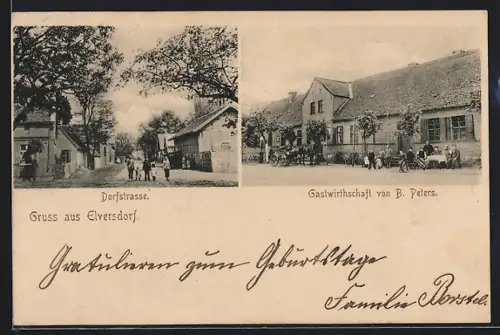 Dorfstrasse.
Gastwirthschaft von B. Peters.
Gruss aus Elversdorf.
Gratulieren zum Geburtstage
Familie Borstel.